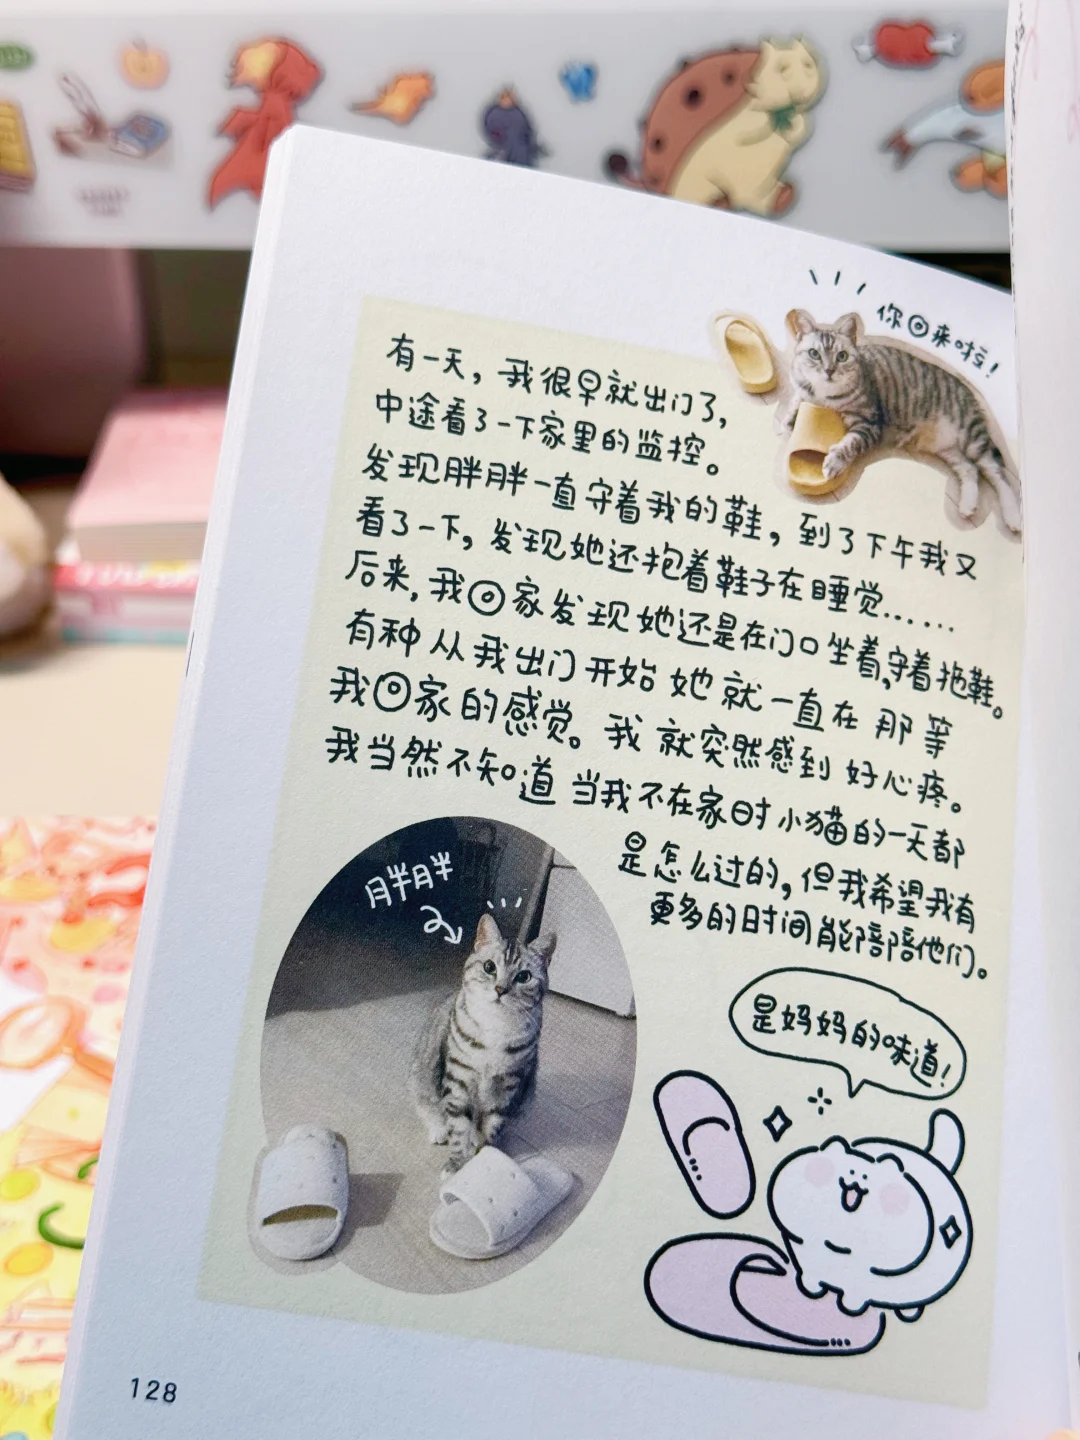 你回来啦!
有一天，我很早就出门了，
中途看了一下家里的监控。
发现胖胖一直守着我的鞋，到了下午我又
看了一下，发现她还抱着鞋子在睡觉……
后来，我回家发现她还是在门口坐着，守着拖鞋。
有种从我出门开始她就一直在那等
我回家的感觉。我就突然感到好心疼。
我当然不知道当我不在家时小猫的一天都
是怎么过的，但我希望我有
更多的时间能陪陪他们。
胖胖
是妈妈的味道!
128